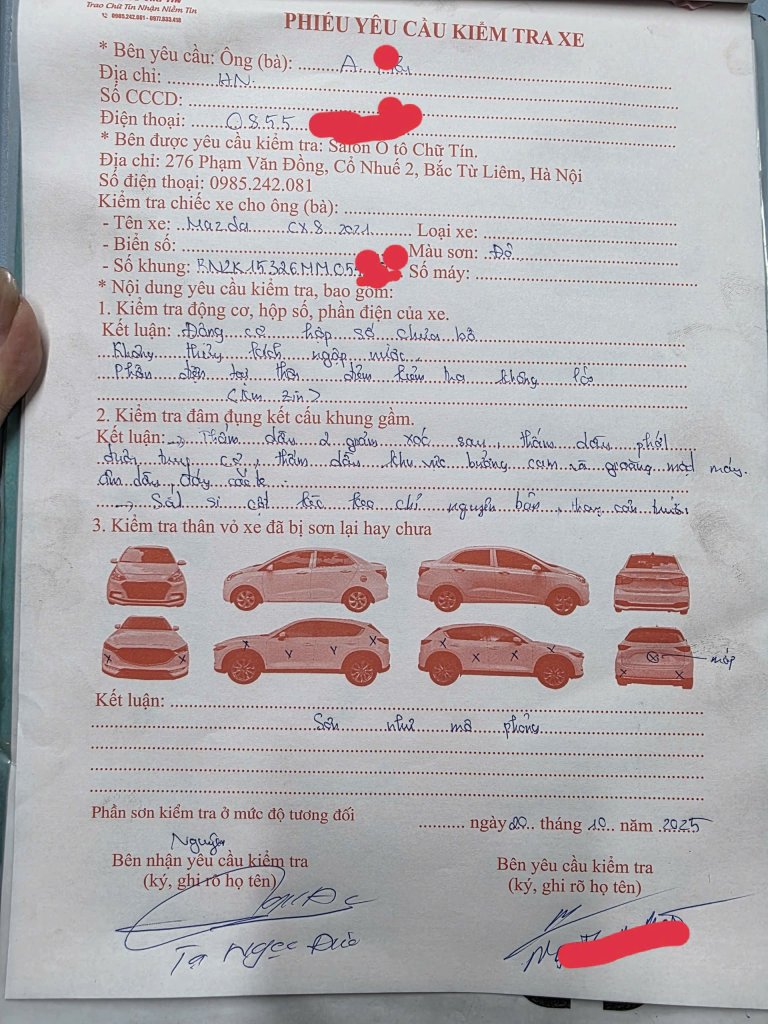 Trao Chữ Tín Nhận Niềm Tin
0985.242.081 - 0977.833.418
PHIẾU YÊU CẦU KIỂM TRA XE
* Bên yêu cầu: Ông (bà): A.
Địa chỉ: HN.
Số CCCD:
Điện thoại: 0855
* Bên được yêu cầu kiểm tra: Salon Ô tô Chữ Tín.
Địa chỉ: 276 Phạm Văn Đồng, Cổ Nhuế 2, Bắc Từ Liêm, Hà Nội
Số điện thoại: 0985.242.081
Kiểm tra chiếc xe cho ông (bà):
- Tên xe: Mazda CX8 2021 Loại xe:
- Biển số: Màu sơn: Đỏ
- Số khung: RN2K15326MMC05 Số máy:
* Nội dung yêu cầu kiểm tra, bao gồm:
1. Kiểm tra động cơ, hộp số, phần điện của xe.
Kết luận: Động cơ hộp số chưa bổ
Không thủy kích ngập nước.
Phần điện tại thời điểm kiểm tra không lỗi
(Km zin)
2. Kiểm tra đâm đụng kết cấu khung gầm.
Kết luận: → Thấm dầu 2 giảm xóc sau, thấm dầu phớt
đuôi trục cơ, thấm dầu khu vực buồng cam và gioăng mặt máy.
ẩm dầu đáy các te.
→ Sát si cột kèo chỉ nguyên bản,
3. Kiểm tra thân vỏ xe đã bị sơn lại hay chưa
móp
Kết luận:
Sơn như mô phỏng
Phần sơn kiểm tra ở mức độ tương đối
ngày 20 tháng 10 năm 2025
Nguyên
Bên nhận yêu cầu kiểm tra
Bên yêu cầu kiểm tra
(ký, ghi rõ họ tên)
(ký, ghi rõ họ tên)
Tạ Ngọc Đức